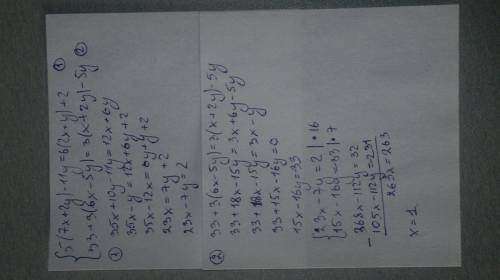 { 5(7x+2y)-11y=6(2x+y)+2 ①
33+3(6x-5y)=3(x+2y)-5y ②
① 35x+10y-11y=12x+6y
35x-y=12x+6y+2
35x-12x=6y+y+2
23x=7y+2
23x-7y=2
② 33+3(6x-5y)=3(x+2y)-5y
33+18x-15y=3x+6y-5y
33+18x-15y=3x-y
33+15x-16y=0
15x-16y=33
{ 23x-7y=2 | •16
15x-16y=-33 | •7
368x-112y=32
- 105x-112y=-231
263x=263
x=1